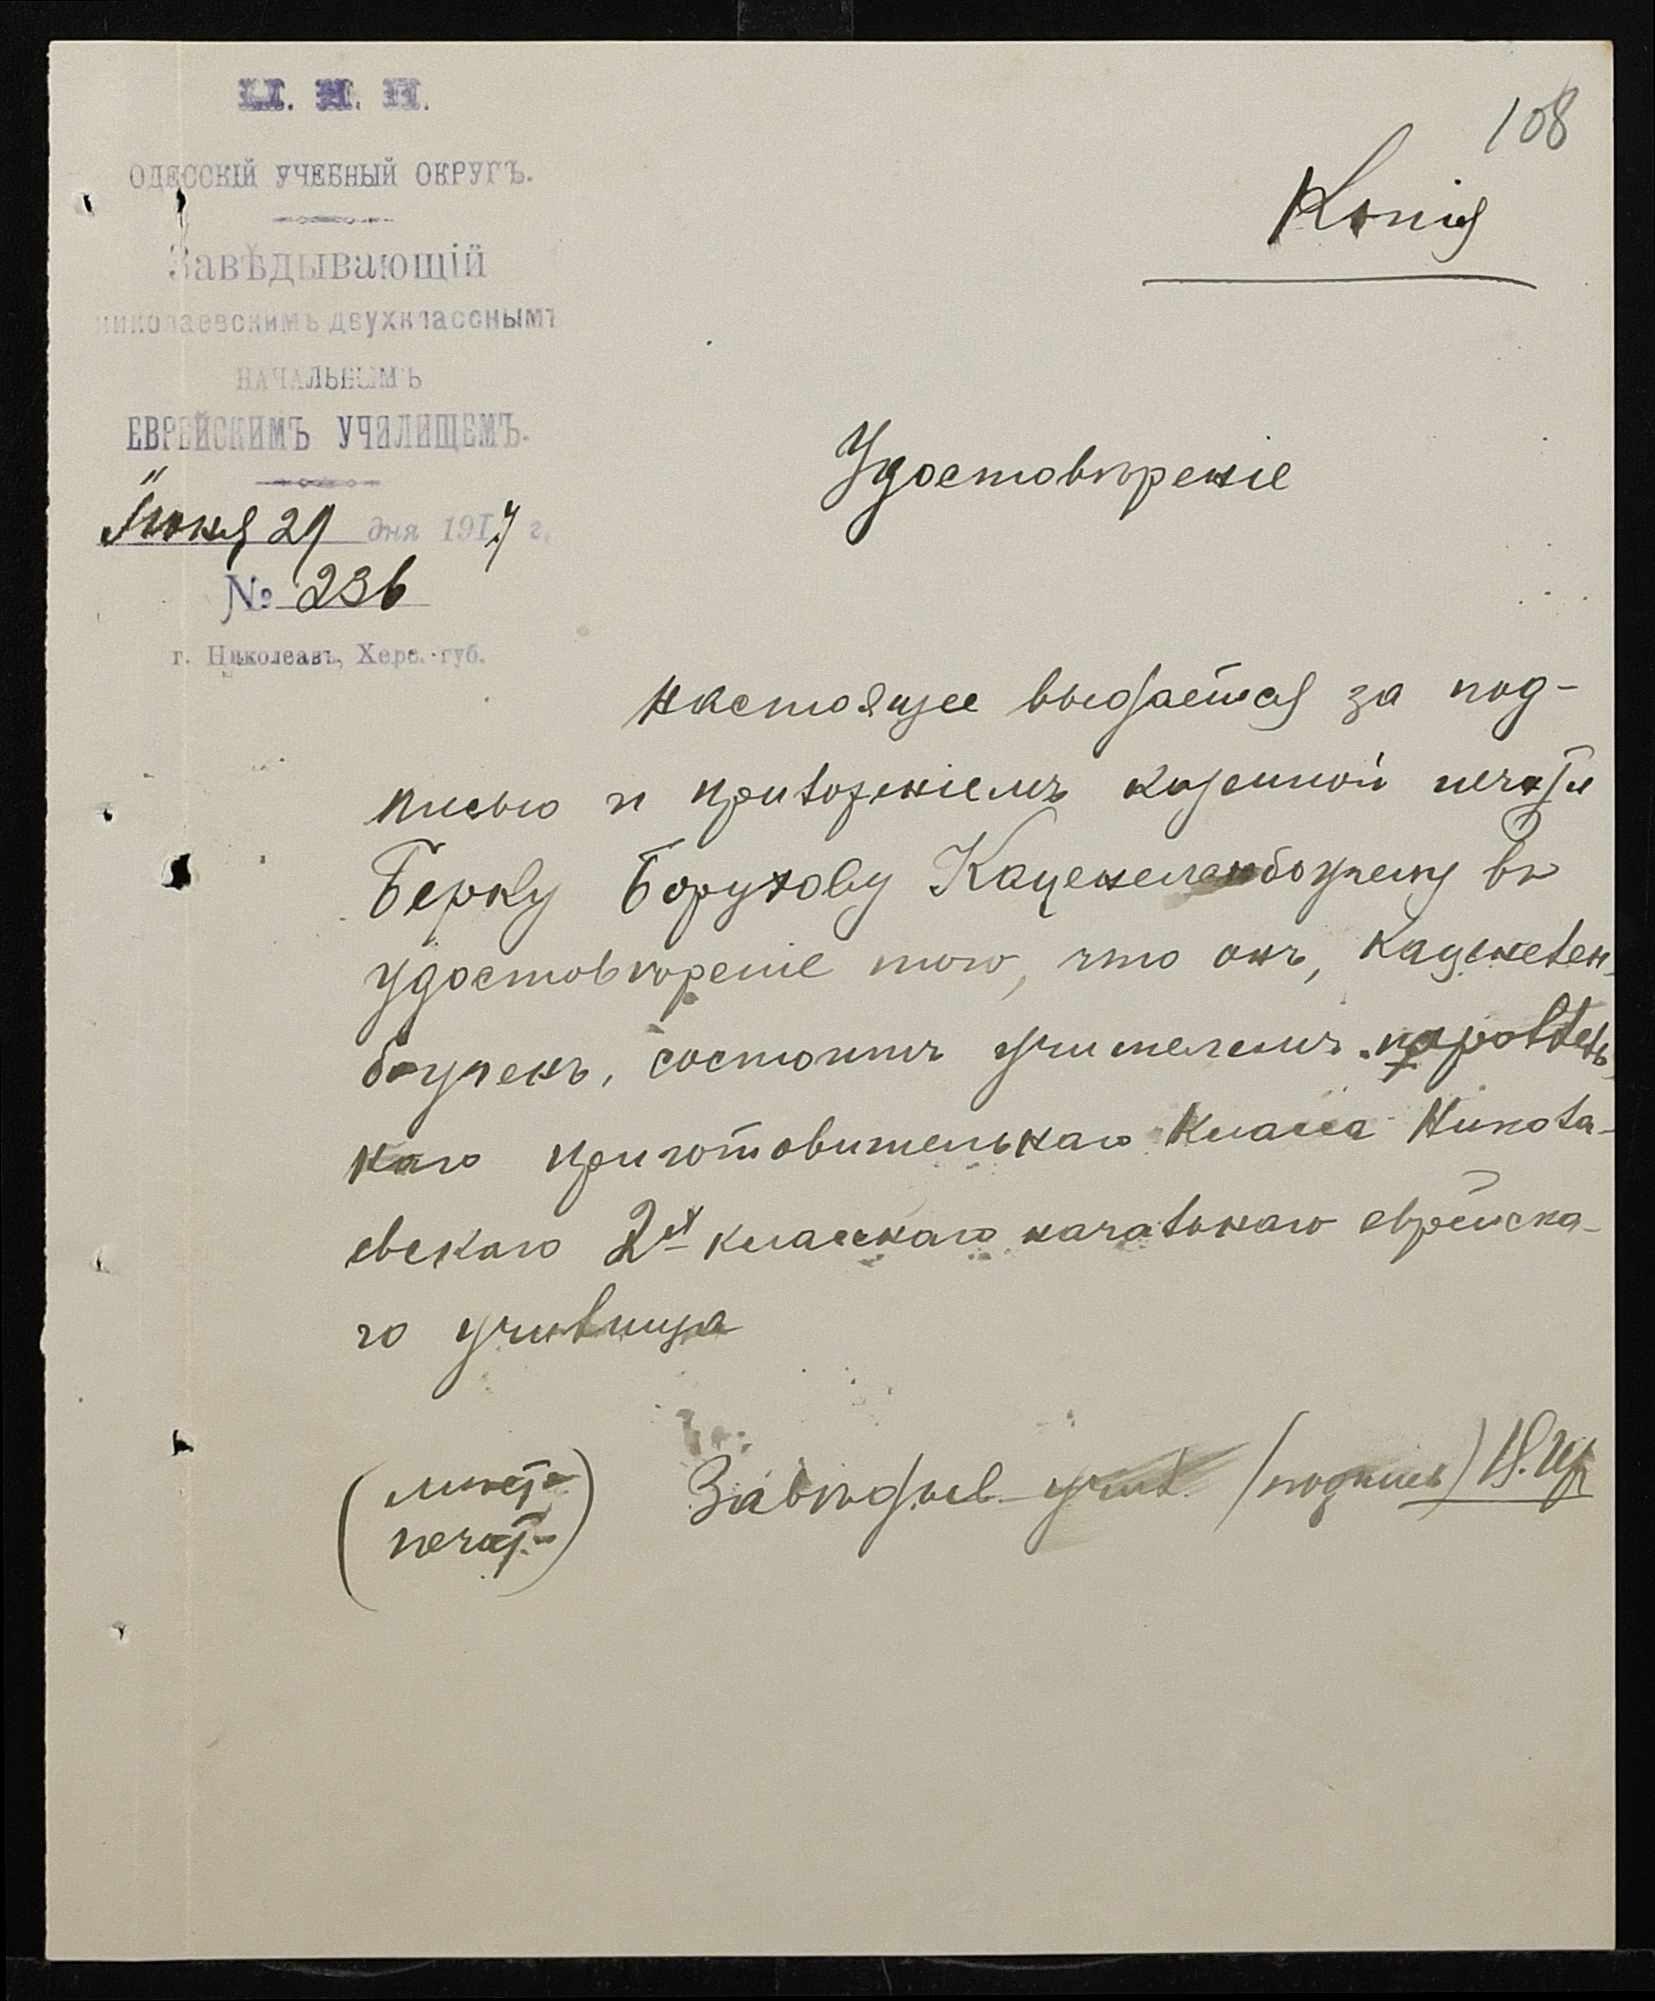 М. Н. П.
108
ОДЕССКІЙ УЧЕБНЫЙ ОКРУГЪ.
Копія
Завѣдывающій
николаевскимъ двухкласснымъ
НАЧАЛЬНЫМЪ
ЕВРЕЙСКИМЪ УЧИЛИЩЕМЪ.
Іюня 29 дня 1917 г.
№ 236
г. Николаевъ, Херс. губ.
Удостовѣреніе
Настоящее выдается за под-
писью и приложеніемъ казенной печати
Берку Борухову Каценеленбогену въ
удостовѣреніе того, что онъ, Каценелен-
богенъ, состоитъ учителемъ параллель-
наго приготовительнаго класса Никола-
евскаго 2х класснаго начальнаго еврейска-
го училища
(мѣсто
печати)
Завѣдыв. учил. (подпись)